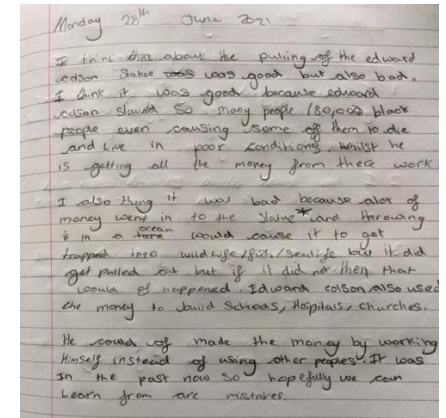 Monday 28th June 2021
I think that about the pulling of the edward
colson Statue was was good but also bad.
I think it was good because edward
colsan slaved so many people 180,000 black
people even causing some of them to die
and Live in poor conditions whilst he
is getting all the money from there work
I also thing it was bad because alot of
money went in to the statue * and throwing
it in a ocean would cause it to get
trapped into wildlife/fish/sealife but it did
get pulled out but if it did not then that
would of happened. Edward colson also used
the money to build Schools, Hospitals, churches.
He could of made the money by working
Himself instead of using other peoples. It was
In the past now so hopefully we can
Learn from are mistakes.